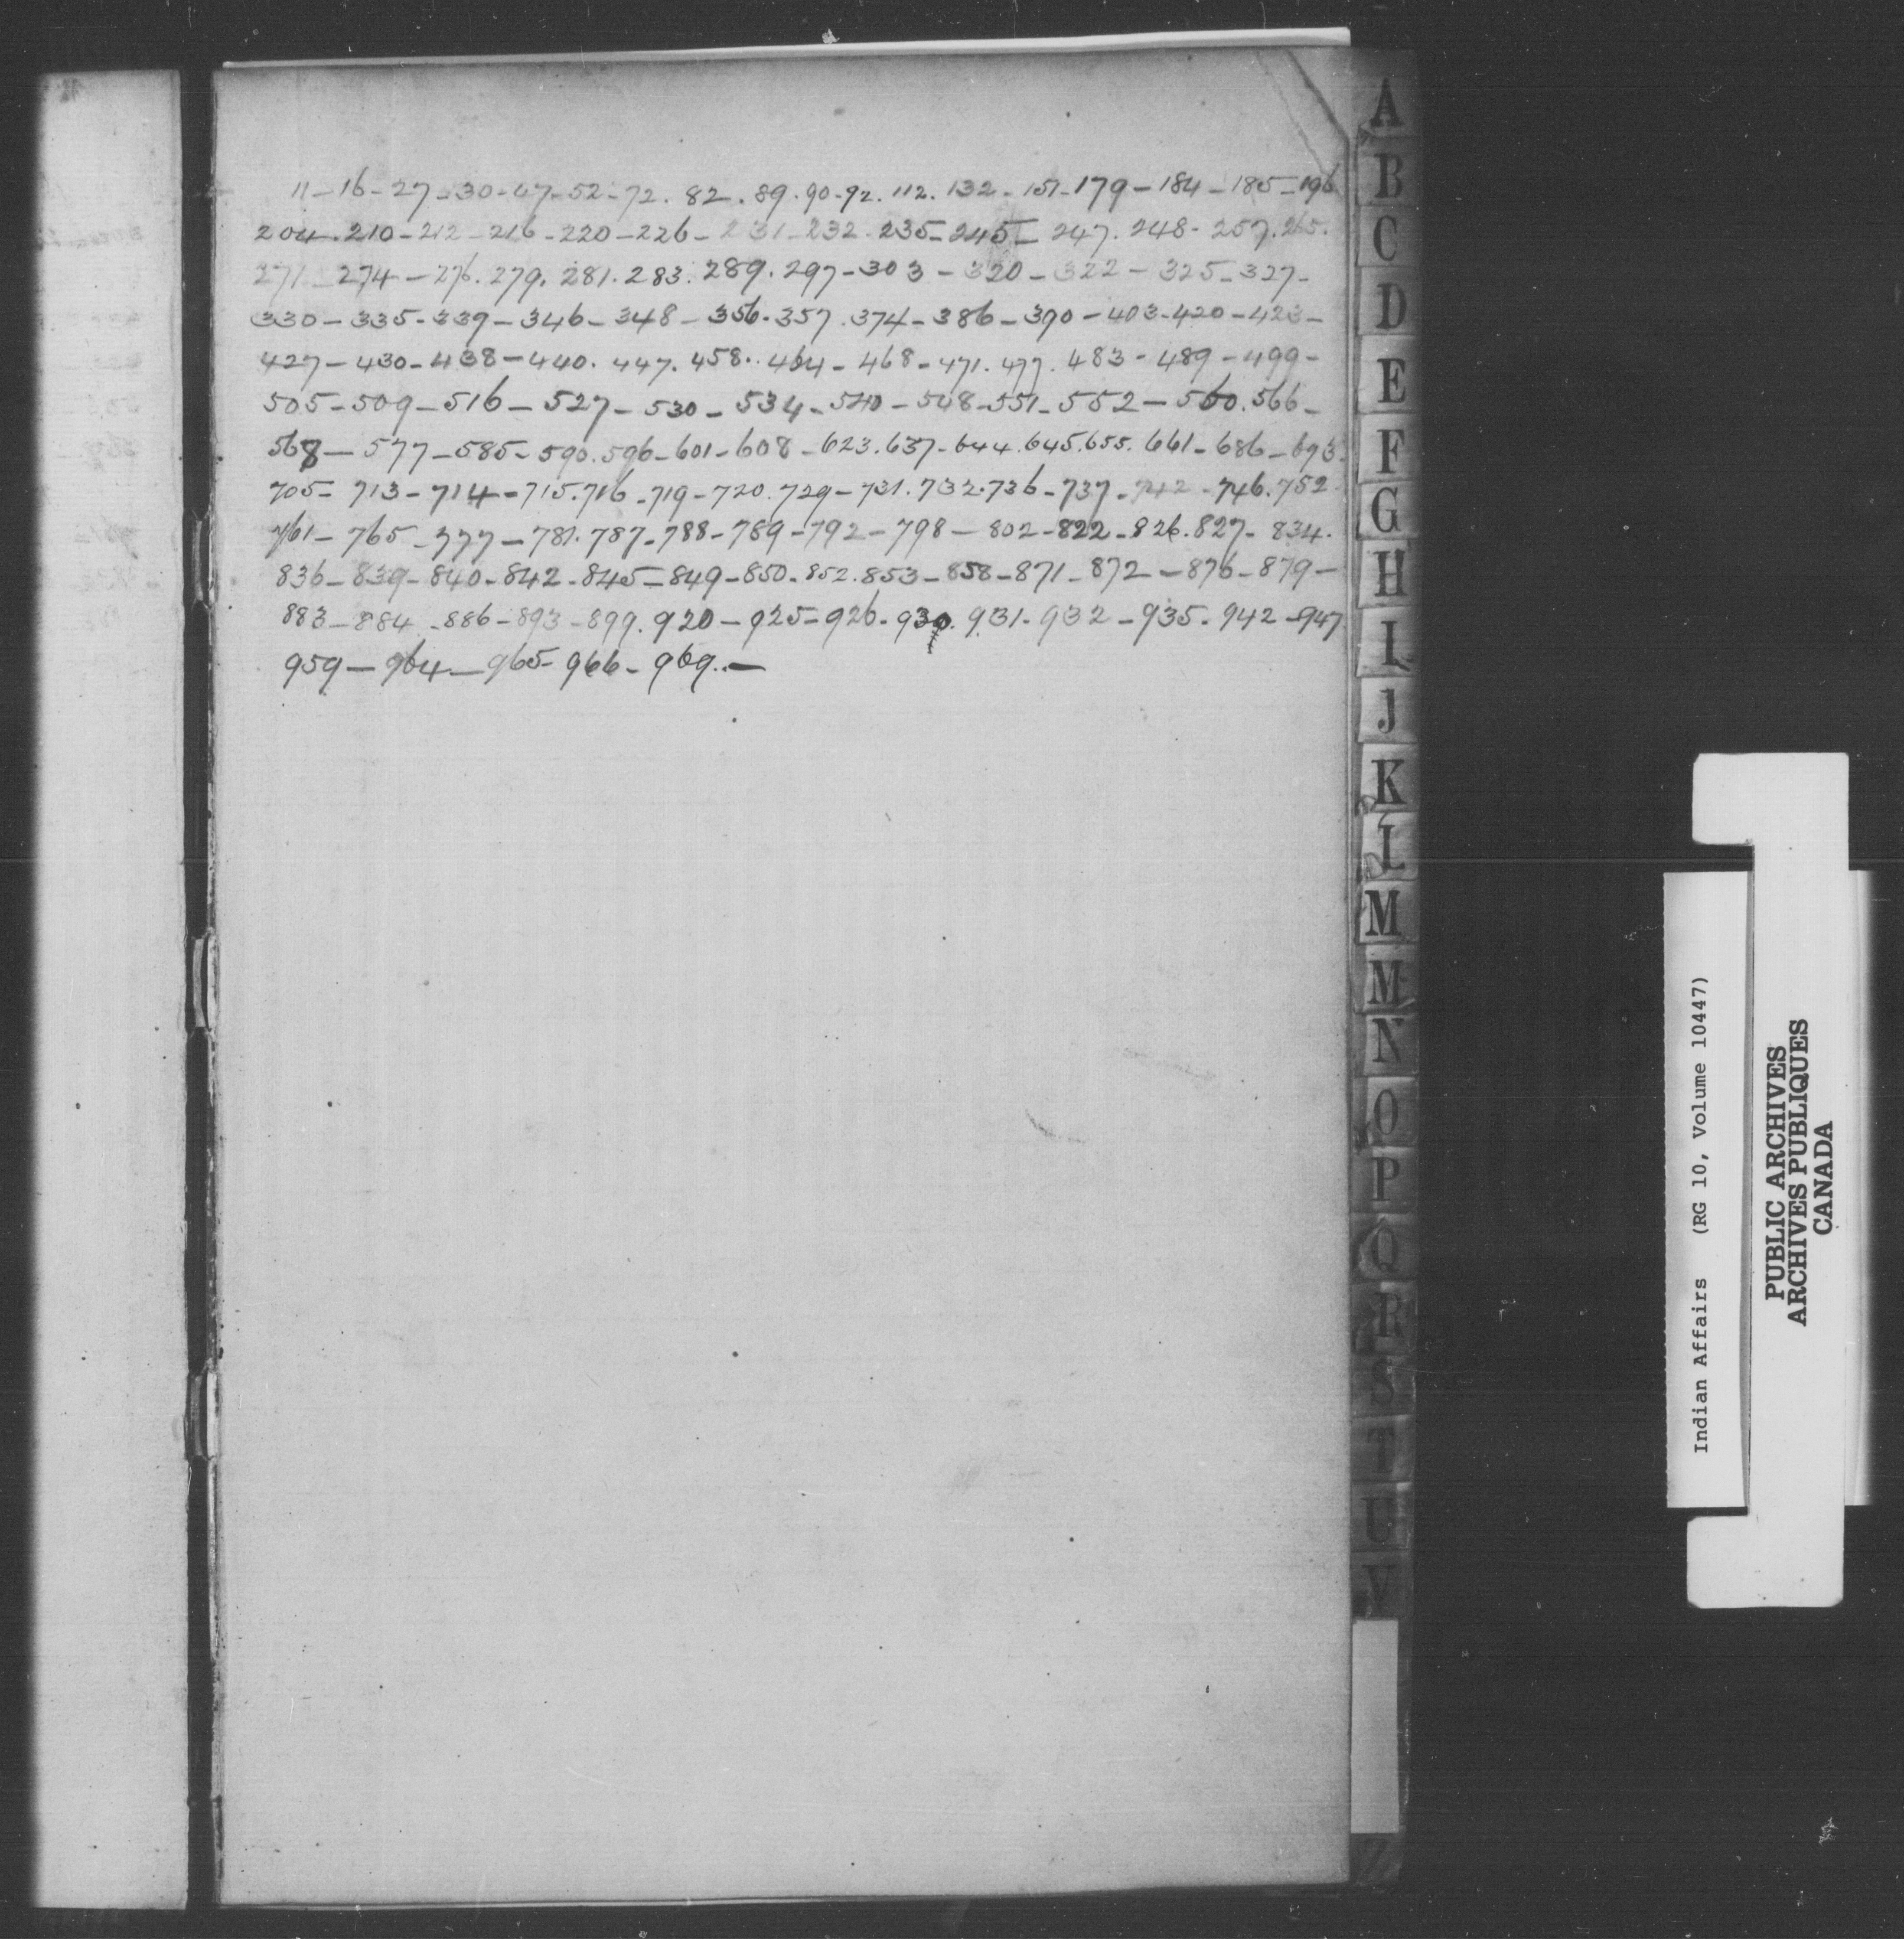 11-16-27-30-47-52-72.82.89.90-92.112.132-151-179-184-185-196
204.210-212-216-220-226-231-232-235-245-247.248-257.265.
271-274-276.279.281.283.289.297-303-320-322-325-327-
330-335-339-346-348-356-357.374-386-390-403-420-423-
427-430-438-440.447.458..464-468-471.477.483-489-499-
505-509-516-527-530-534-540-548-551-552-560.566-
568-577-585-590.596-601-608-623.637-644.645.655.661-686-693.
705-713-714-715.716-719-720.729-731.732.736-737-742-746.752-
761-765-777-781.787-788-789-792-798-802-822-826.827-834.
836-839-840-842-845-849-850-852.853-858-871-872-876-879-
883-884-886-893-899.920-925-926-930.931-932-935-942-947
959-964-965-966-969..-
A
B
C
D
E
F
G
H
I
J
K
L
M
M
N
O
P
Q
R
S
T
U
V
Indian Affairs (RG 10, Volume 10447)
PUBLIC ARCHIVES
ARCHIVES PUBLIQUES
CANADA